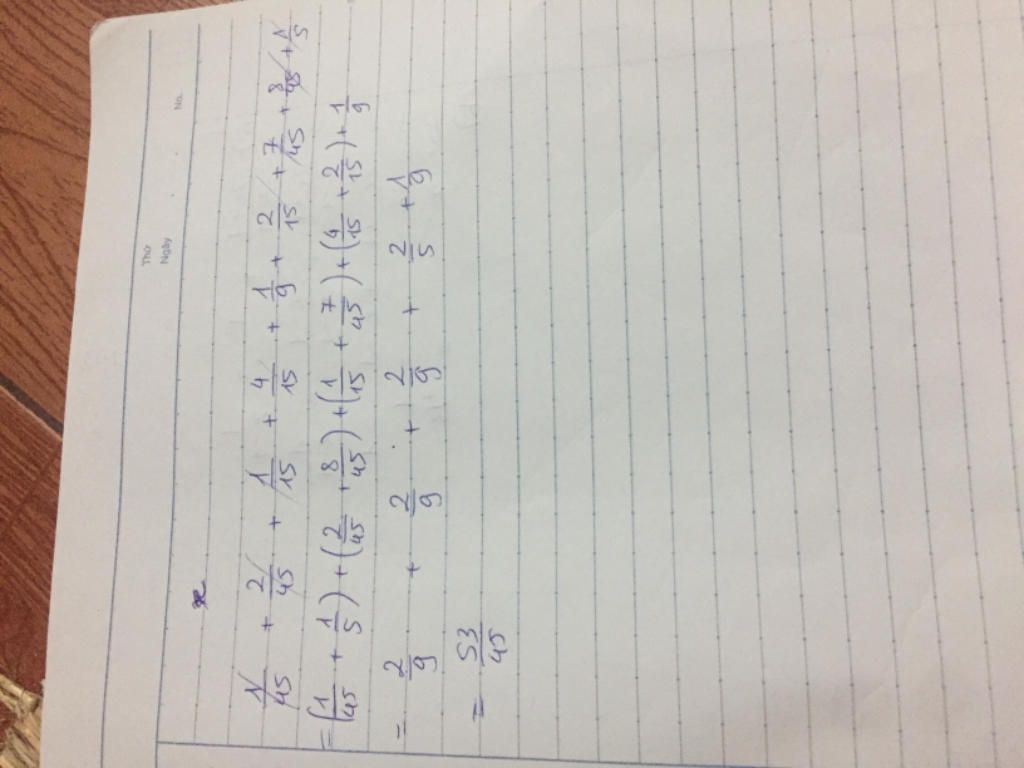 Thứ
Ngày No.
x
1/45 + 2/45 + 1/15 + 4/15 + 1/9 + 2/15 + 7/45 + 8/45 + 1/5
= (1/45 + 1/5) + (2/45 + 8/45) + (1/15 + 7/45) + (4/15 + 2/15) + 1/9
= 2/9 + 2/9 + 2/9 + 2/5 + 1/9
= 53/45